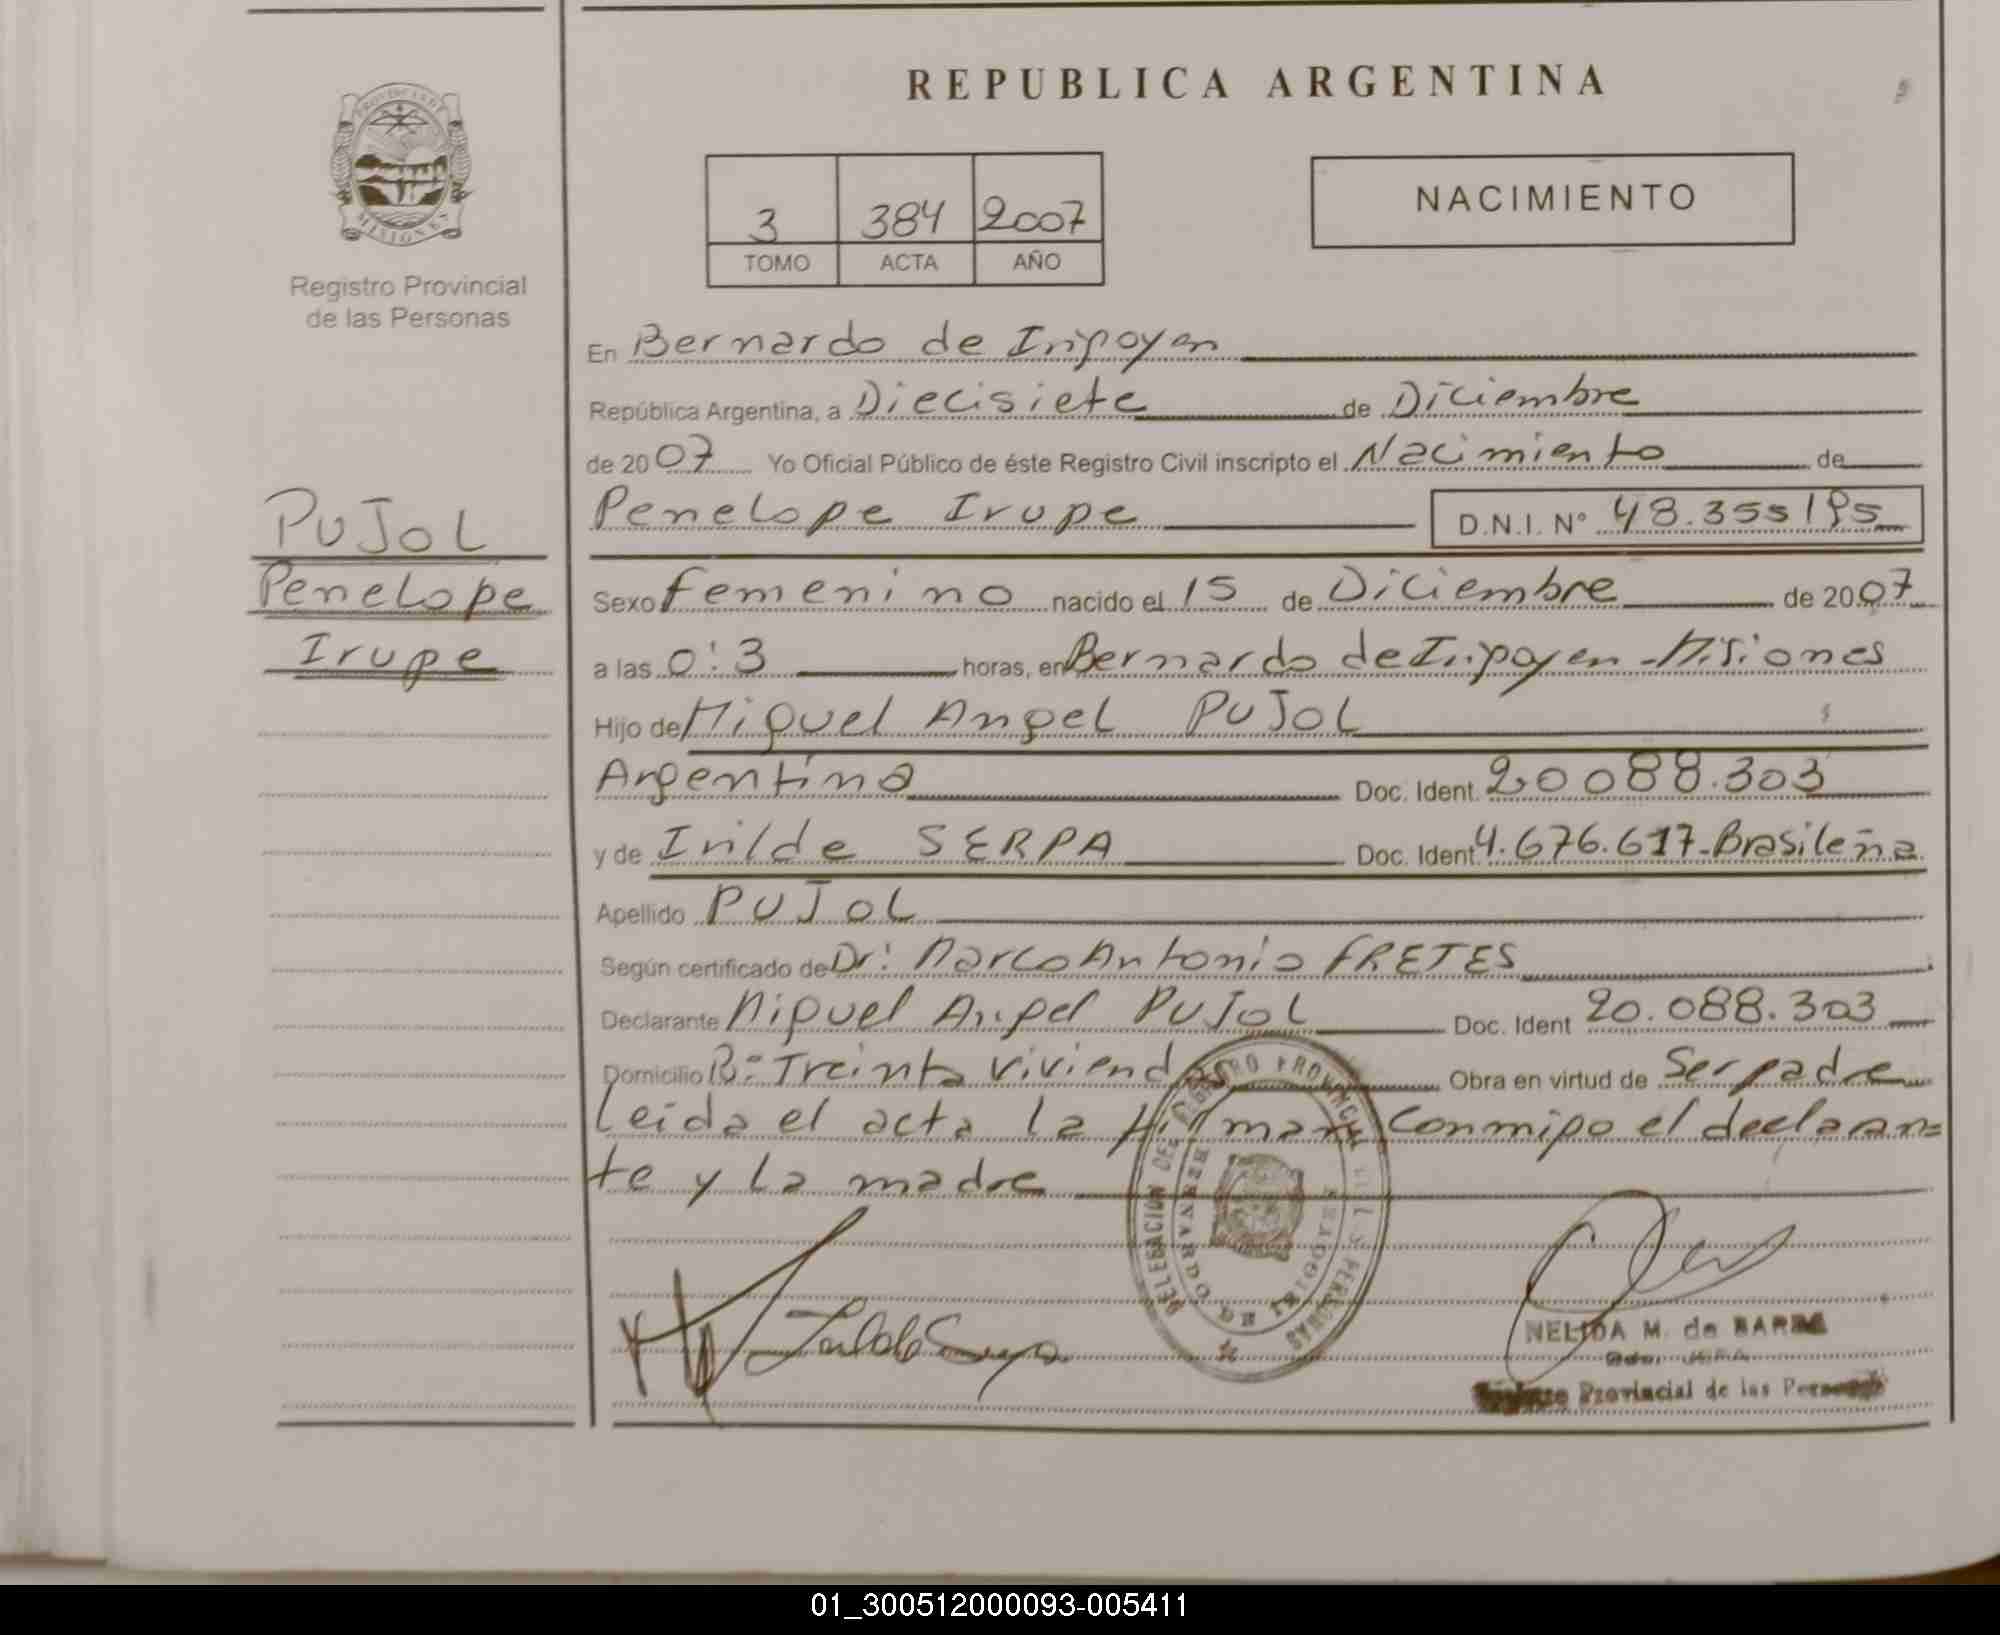 REPUBLICA ARGENTINA
PROVINCIA DE
MISIONES
Registro Provincial
de las Personas
3 384 2007
TOMO ACTA AÑO
NACIMIENTO
En Bernardo de Irigoyen
República Argentina, a Diecisiete de Diciembre
de 2007 Yo Oficial Público de éste Registro Civil inscripto el Nacimiento de
Penelope Irupe D.N.I. N° 48.355195
PUJOL
Penelope
Irupe
Sexo femenino nacido el 15 de Diciembre de 2007
a las 0:3 horas, en Bernardo de Irigoyen - Misiones
Hijo de Miguel Angel PUJOL
Argentino Doc. Ident. 20088.303
y de Irilde SERPA Doc. Ident 4.676.617-Brasileña
Apellido PUJOL
Según certificado de Dr: Marco Antonio FRETES
Declarante Miguel Angel PUJOL Doc. Ident 20.088.303
Domicilio B: Treinta viviend Obra en virtud de Ser padre
Leida el acta la firman conmigo el declaran=
te y La madre
DELEGACION DEL REGISTRO PROVINCIAL DE LAS PERSONAS
BERNARDO DE IRIGOYEN
NELIDA M. de
Provincial de las Personas
01_300512000093-005411